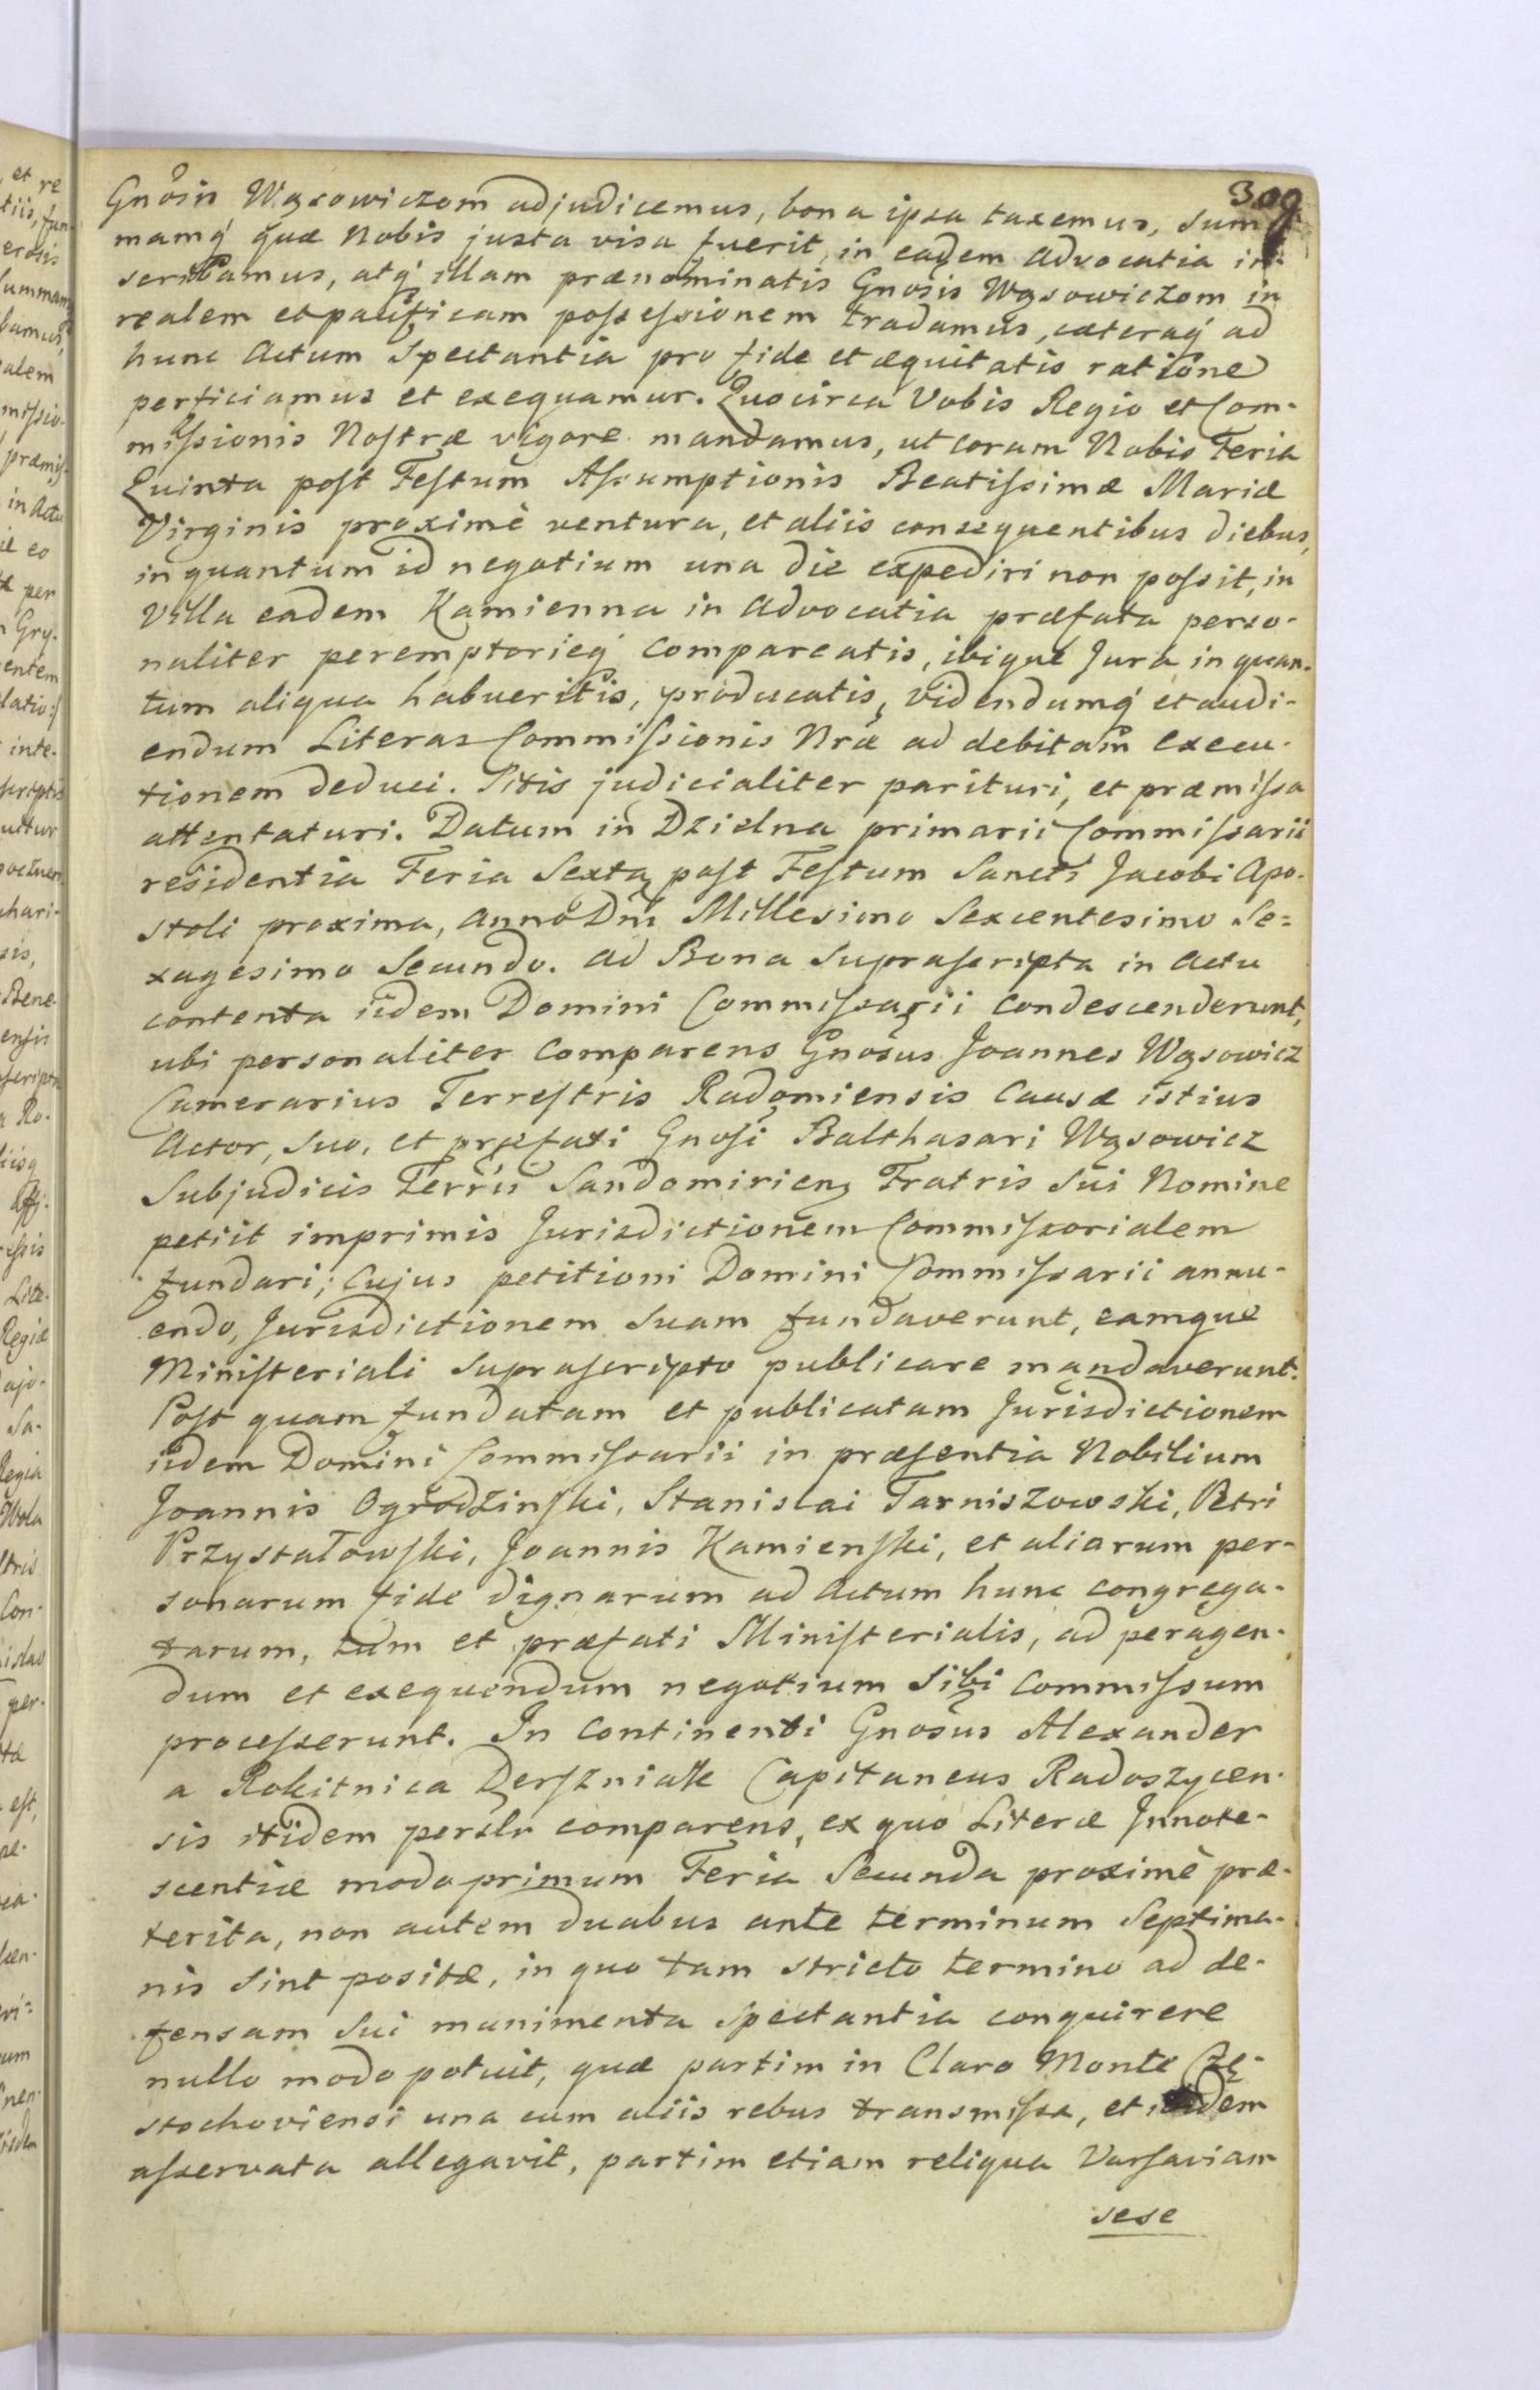 309
Gnosis Wąsowiczom adjudicemus, bona ipsa taxemus, sum-
mamq́ quæ Nobis justa visa fuerit, in eadem Advocatia in-
scribamus, atq́ illam prænominatis Gnosis Wąsowiczom in
realem et pacificam possessionem tradamus, cæteraq́ ad
hunc Actum Spectantia pro fide et æquitatis ratione
perficiamus et exequamur. Quocirca Vobis Regio et Com-
missionis Nostræ vigore mandamus, ut coram Nobis Feria
Quinta post Festum Assumptionis Beatissimæ Mariæ
Virginis proximè ventura, et aliis consequentibus diebus,
inquantum id negotium una die expediri non possit, in
Villa eadem Kamienna in Advocatia præfata perso-
naliter peremptorieq́ Compareatis, ibique Jura in quan-
tum aliqua habueritis, producatis, Videndumq́ et audi-
endum Literas Commissionis Nræ ad debitam execu-
tionem deduci. Sitis judicialiter parituri, et præmissa
attentaturi. Datum in Dzielna primarii Commissarii
residentia Feria Sexta post Festum Sancti Jacobi Apo-
stoli proxima, Anno Dni Millesimo Sexcentesimo Se=
xagesimo Secundo. Ad Bona Suprascripta in Actu
contenta iidem Domini Commissarii Condescenderunt,
ubi personaliter Comparens Gnosus Joannes Wąsowicz
Camerarius Terrestris Radomiensis Causæ istius
Actor, Suo, et præfati Gnosi Balthasari Wąsowicz
Subjudicis Terris Sandomirien Fratris Sui Nomine
petiit imprimis Jurisdictionem Commissorialem
fundari; Cujus petitioni Domini Commissarii annu-
endo, Jurisdictionem Suam fundaverunt, eamque
Ministeriali Suprascripto publicare mandaverunt.
Post quam fundatam et publicatam Jurisdictionem
iidem Domini Commissarii in præsentia Nobilium
Joannis Ogrodzinski, Stanislai Tarniszowski, Petri
Przystałowski, Joannis Kamienski, et aliarum per-
sonarum fide dignarum ad Actum hunc congrega-
tarum, tum et præfati Ministerialis, ad peragen-
dum et exequendum negotium Sibi Commissum
processerunt. In Continenti Gnosus Alexander
a Rokitnica Derszniak Capitaneus Radoszycen-
sis itidem persltr comparens, ex quo Literæ Innote-
scentiæ modo primum Feria Secunda proximè præ-
terita, non autem duabus ante terminum Septima-
nis Sint positæ, in quo tam stricto termino ad de-
fensam Sui munimenta Spectantia conquirere
nullo modo potuit, quæ partim in Claro Monte Czę-
stochoviensi una cum aliis rebus transmissa, et ibidem
asservata allegavit, partim etiam reliqua Varsaviam
sese